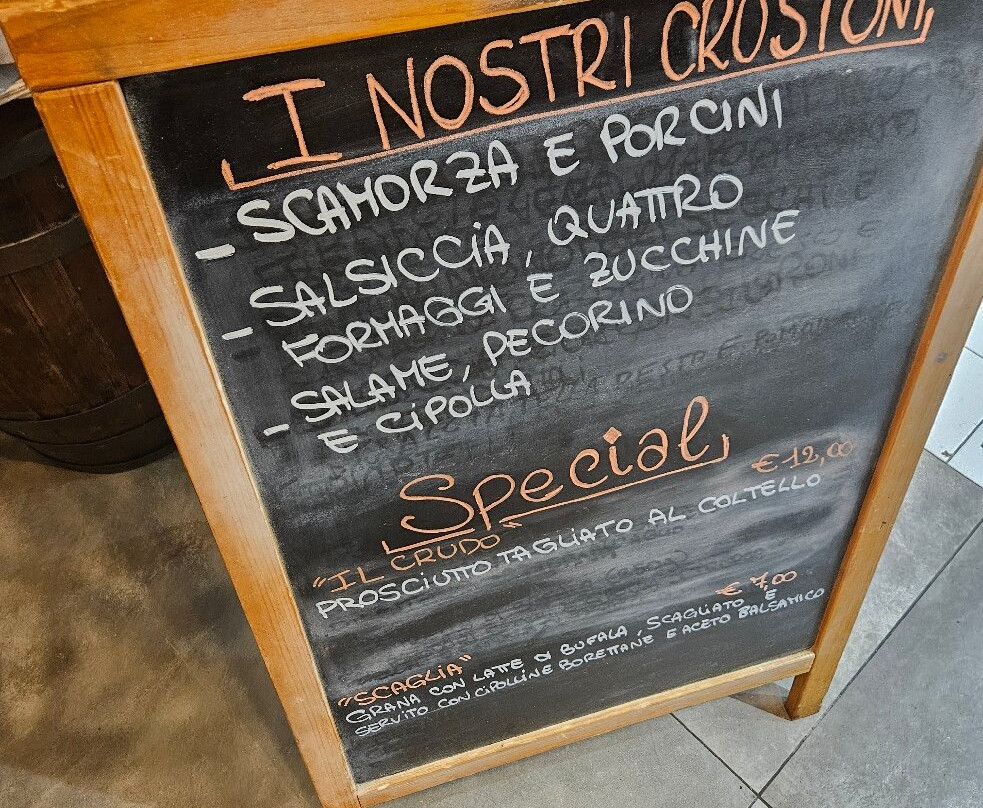 I NOSTRI CROSTONI
- SCAMORZA E PORCINI
- SALSICCIA, QUATTRO
FORMAGGI E ZUCCHINE
- SALAME, PECORINO
E CIPOLLA
Special
"IL CRUDO" €12,00
PROSCIUTTO TAGLIATO AL COLTELLO
"SCAGLIA" € 7,00
GRANA CON LATTE DI BUFALA, SCAGLIATO E
SERVITO CON CIPOLLINE BORETTANE E ACETO BALSAMICO